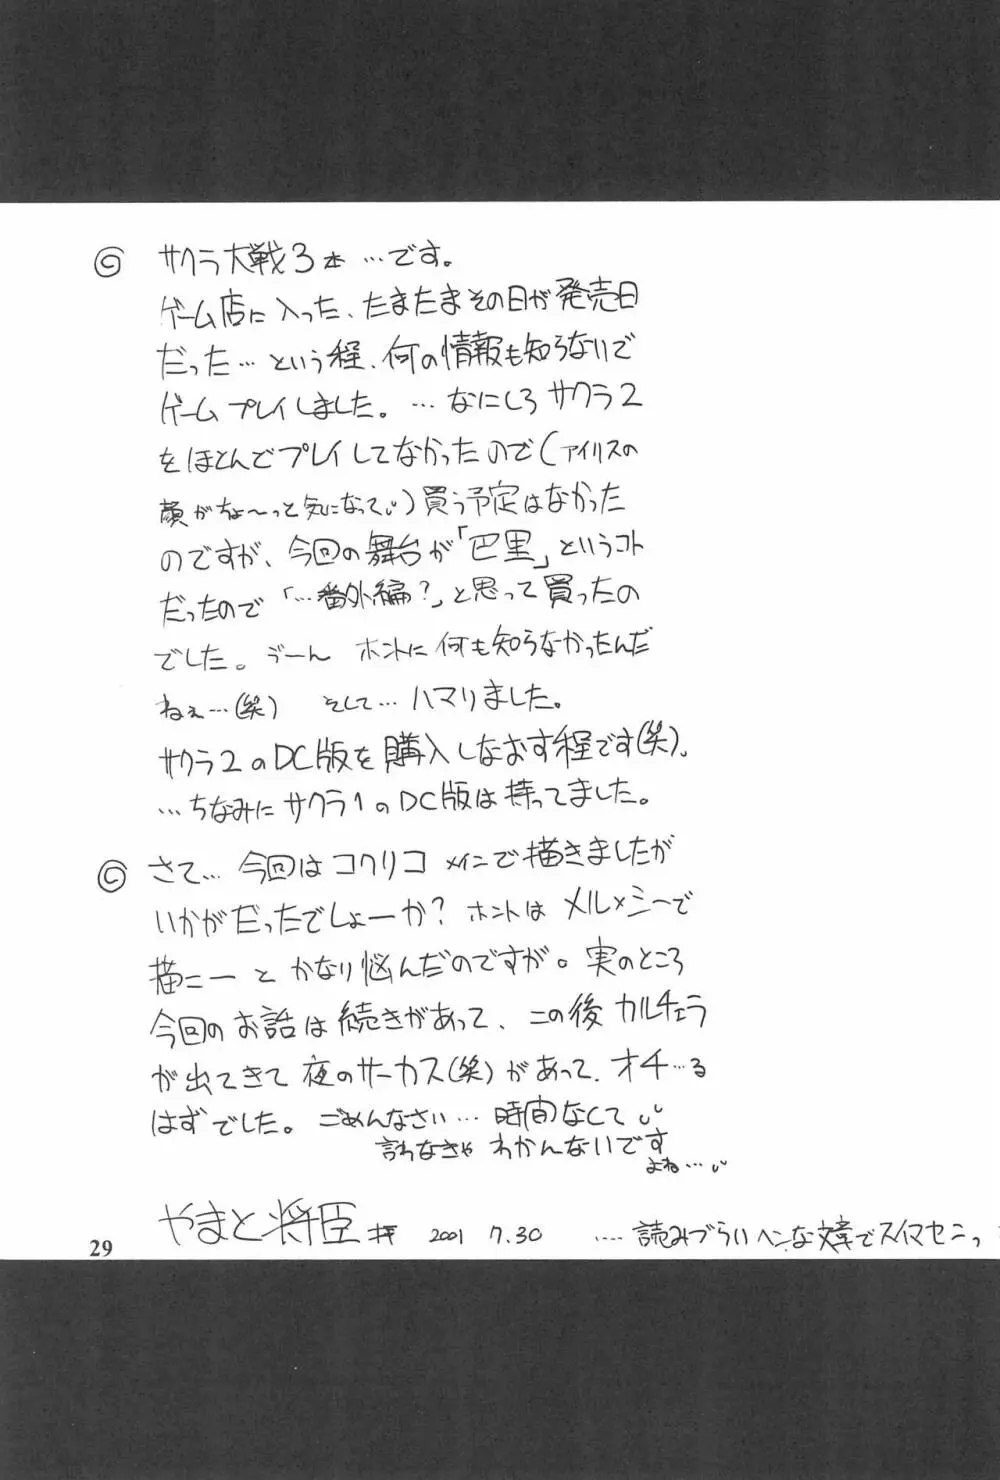 ◎ サクラ大戦3本…です。
ゲーム店に入った、たまたまその日が発売日
だった…という程、何の情報も知らないで
ゲームプレイしました。…なにしろサクラ2
をほとんどプレイしてなかったので(アイリスの
顔がちょ〜っと気になって)買う予定はなかった
のですが、今回の舞台が「巴里」というコト
だったので「…番外編?」と思って買ったの
でした。うーん ホントに何も知らなかったんだ
ねぇ…(笑) そして…ハマりました。
サクラ2のDC版を購入しなおす程です(笑)。
…ちなみにサクラ1のDC版は持ってました。
◎ さて…今回はコクリコメインで描きましたが
いかがだったでしょーか? ホントはメル×シーで
描こーとかなり悩んだのですが。実のところ
今回のお話は続きがあって、この後カルチェラ
が出てきて夜のサーカス(笑)があって、オチ…る
はずでした。ごめんなさい…時間なくて
言わなきゃわかんないです
よね…
やまと将臣 拝 2001 7.30 …読みづらいヘンな文章でスイマセンっ
29